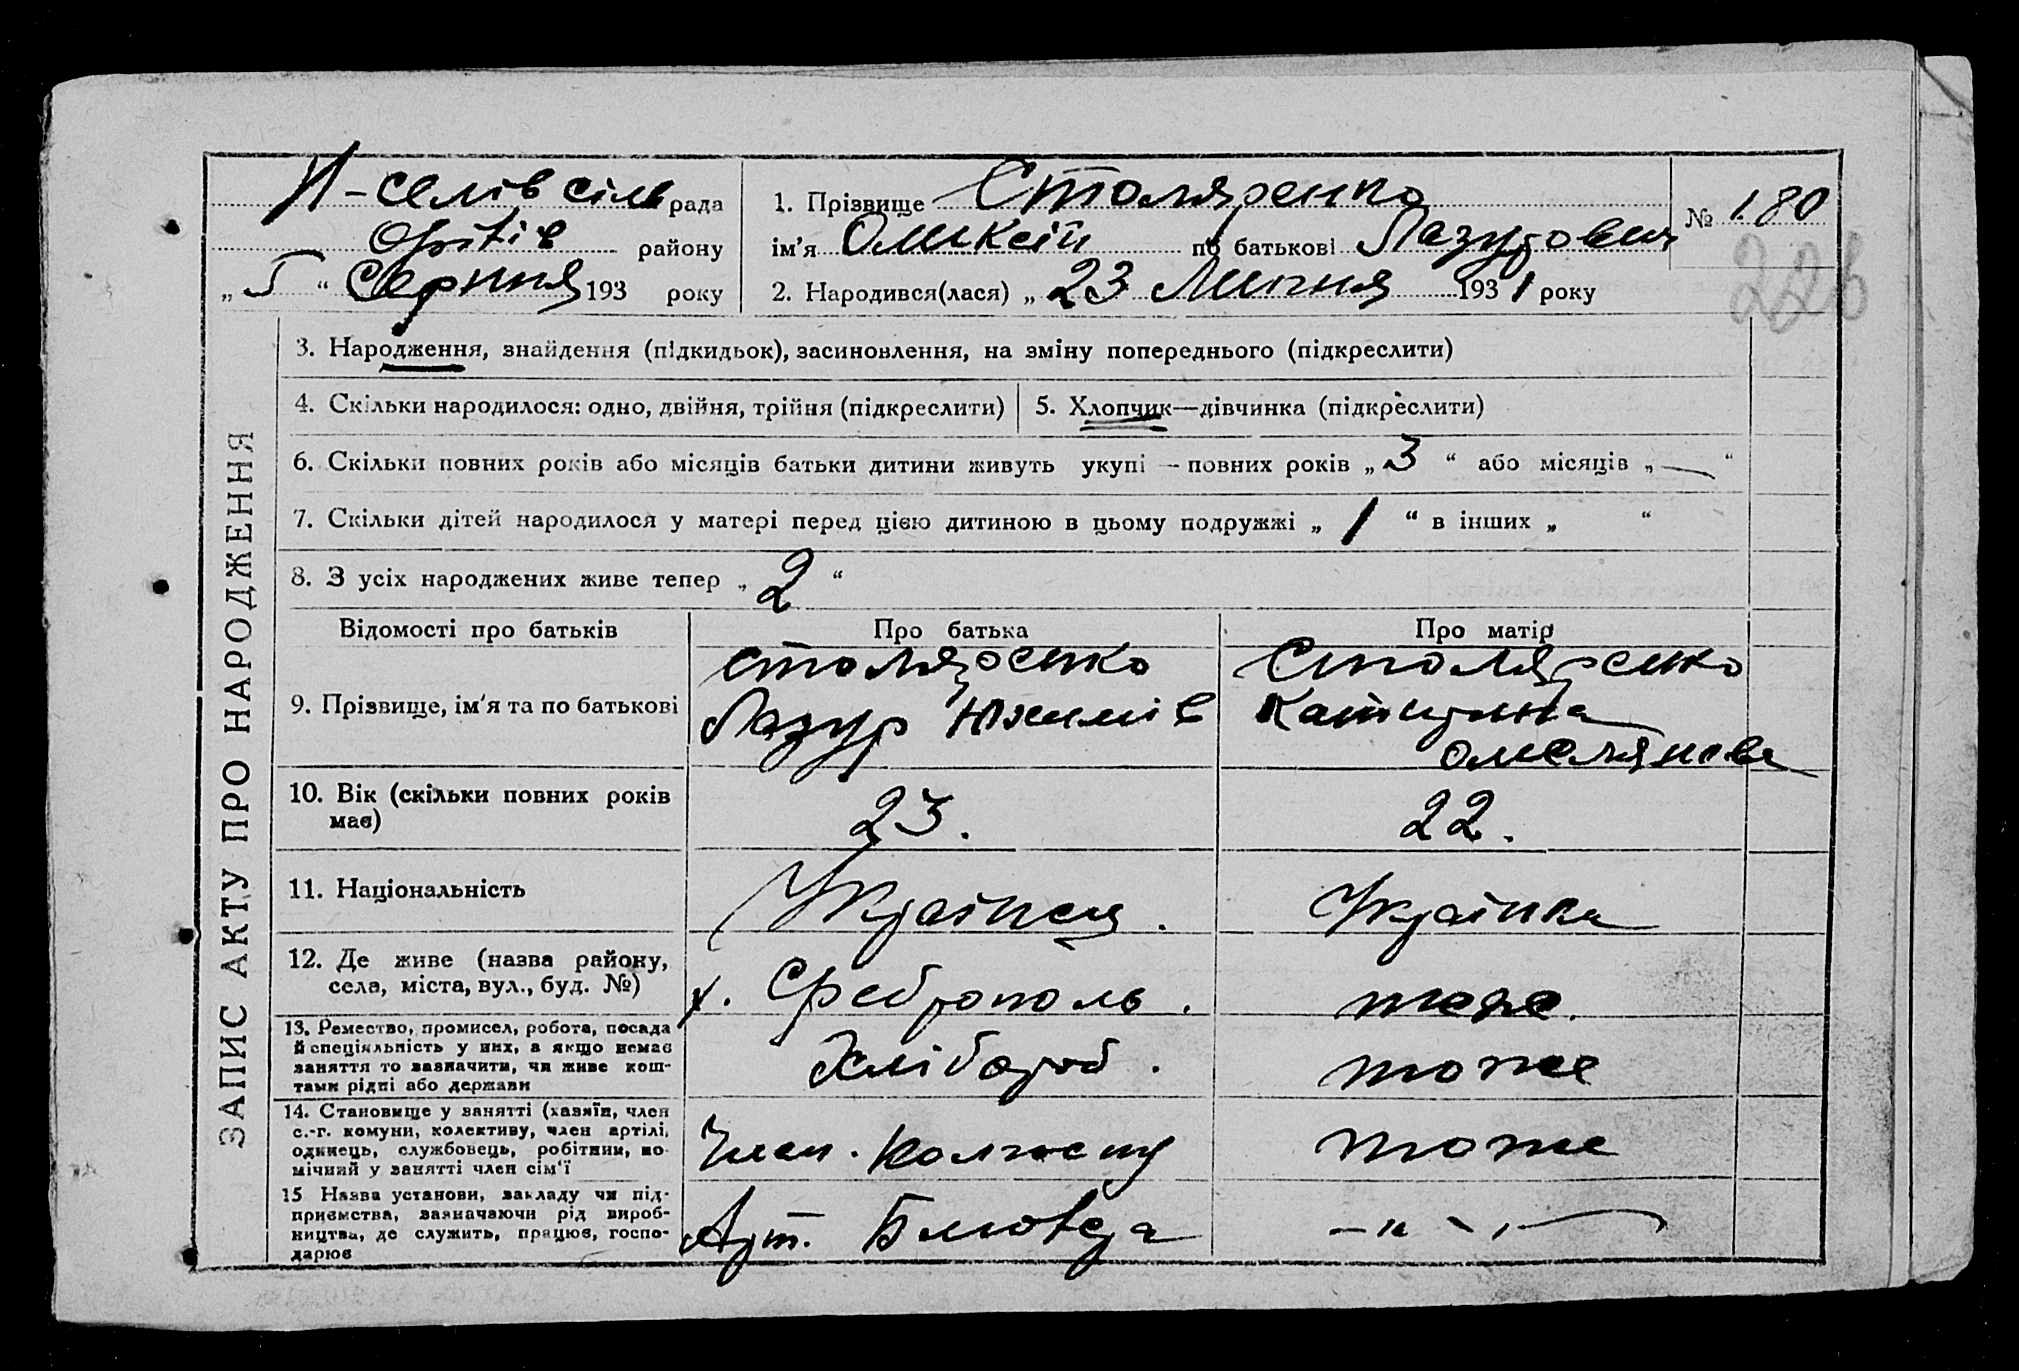 Н-селів сіль рада
Оріхів району
„ 5 “ Серпня 193 року
1. Прізвище Столяренко
ім’я Олексій по батькові Лазурович
2. Народився(лася) „ 23 Липня 1931 року
№ 180
226
ЗАПИС АКТУ ПРО НАРОДЖЕННЯ
3. Народження, знайдення (підкидьок), засиновлення, на зміну попереднього (підкреслити)
4. Скільки народилося: одно, двійня, трійня (підкреслити) 5. Хлопчик—дівчинка (підкреслити)
6. Скільки повних років або місяців батьки дитини живуть укупі – повних років „ 3 “ або місяців „ — “
7. Скільки дітей народилося у матері перед цією дитиною в цьому подружжі „ 1 “ в інших „ “
8. З усіх народжених живе тепер „ 2 “
Відомості про батьків Про батька Про матір
9. Прізвище, ім’я та по батькові
Столяренко
Лазур Юхимів
Столяренко
Катирина
Омелянова
10. Вік (скільки повних років
має)
23.
22.
11. Національність
Українец.
Українка
12. Де живе (назва району,
села, міста, вул., буд. №)
х. Феброполь.
тоже.
13. Ремество, промисел, робота, посада
й спеціяльність у них, а якщо немає
заняття то зазначити, чи живе кош-
тами рідні або держави
Хлібороб.
тоже
14. Становище у занятті (хазяїн, член
с.-г. комуни, колективу, член артілі,
одинець, службовець, робітник, по-
мічний у занятті член сім’ї
Член. Колгоспу
тоже
15 Назва установи, закладу чи під-
приємства, зазначаючи рід вироб-
ництва, де служить, працює, госпо-
дарює
Арт. Блюхера
– „ –